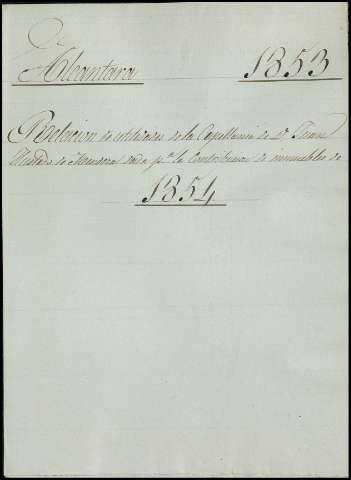 De
Alcantara 1853
Relacion de utilidades de la Capellania de D. Juan
Hurtado de Mendoza dada pa. la Contribucion de inmuebles de
1854